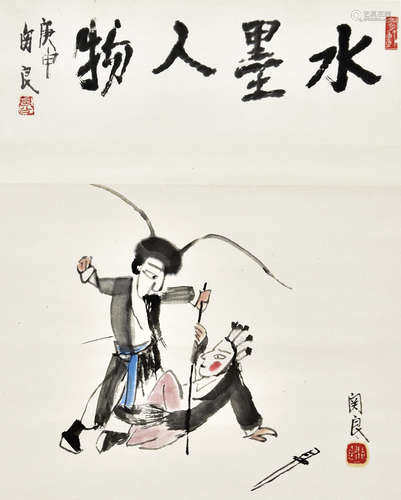 水墨人物
庚申
关良
関良